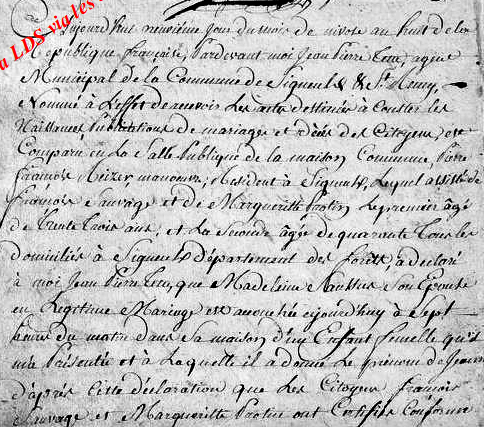 a LDS via les
Aujourd'huit neuvième jour du mois de nivose an huit de la
Republique française, Pardevant moi Jean Pierre agent
Municipal de la Commune de Signeulx & St Remy,
Nommé à L'effet de recevoir Les acte destinées à Conster les
Naissances Publications de mariages et décès des Citoyens, est
Comparu en La Salle Publique de la maison Commune, Pierre
François manœuvre, Résident à Signeulx, Lequel assisté de
François Sauvage et de Margueritte Protin Le premier âgé
de Trente Trois ans, et La Seconde âgée de quarante Tous les
domiciliés à Signeulx département des forêts, a déclaré
à moi Jean Pierre que Madeleine Son Epouse
en Legitime Mariage est accouchée aujourd'huy à Sept
heures du matin dans Sa maison d'un Enfant femelle qu'il
m'a Présentée et à Laquelle il a donné Le prénom de Jeanne
d'après Cette déclaration que Les Citoyens François
Sauvage et Margueritte Protin ont Certifiée Conforme